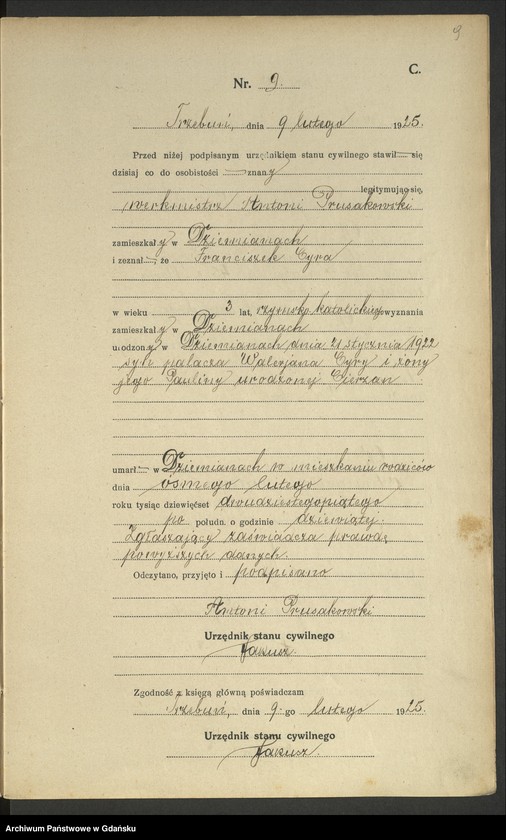 9
C.
Nr. 9.
Trzebuń, dnia 9 lutego 1925.
Przed niżej podpisanym urzędnikiem stanu cywilnego stawił się
dzisiaj co do osobistości znany
legitymując się,
werkmistrz Antoni Prusakowski
zamieszkały w Dziemianach
i zeznał, że Franciszek Cyra
w wieku 3 lat, rzymsko katolickiego wyznania
zamieszkały w Dziemianach
urodzony w Dziemianach dnia 21 stycznia 1922
syn palacza Walerjana Cyry i żony
jego Pauliny urodzonej Gierzan
umarł w Dziemianach w mieszkaniu rodziców
dnia ósmego lutego
roku tysiąc dziewięćset dwudziestegopiątego
po połudn. o godzinie dziewiątej.
Zgłaszający zaświadcza prawdę
powyższych danych.
Odczytano, przyjęto i podpisano
Antoni Prusakowski
Urzędnik stanu cywilnego
Zgodność z księgą główną poświadczam
Trzebuń, dnia 9. go lutego 1925.
Urzędnik stanu cywilnego
Archiwum Państwowe w Gdańsku